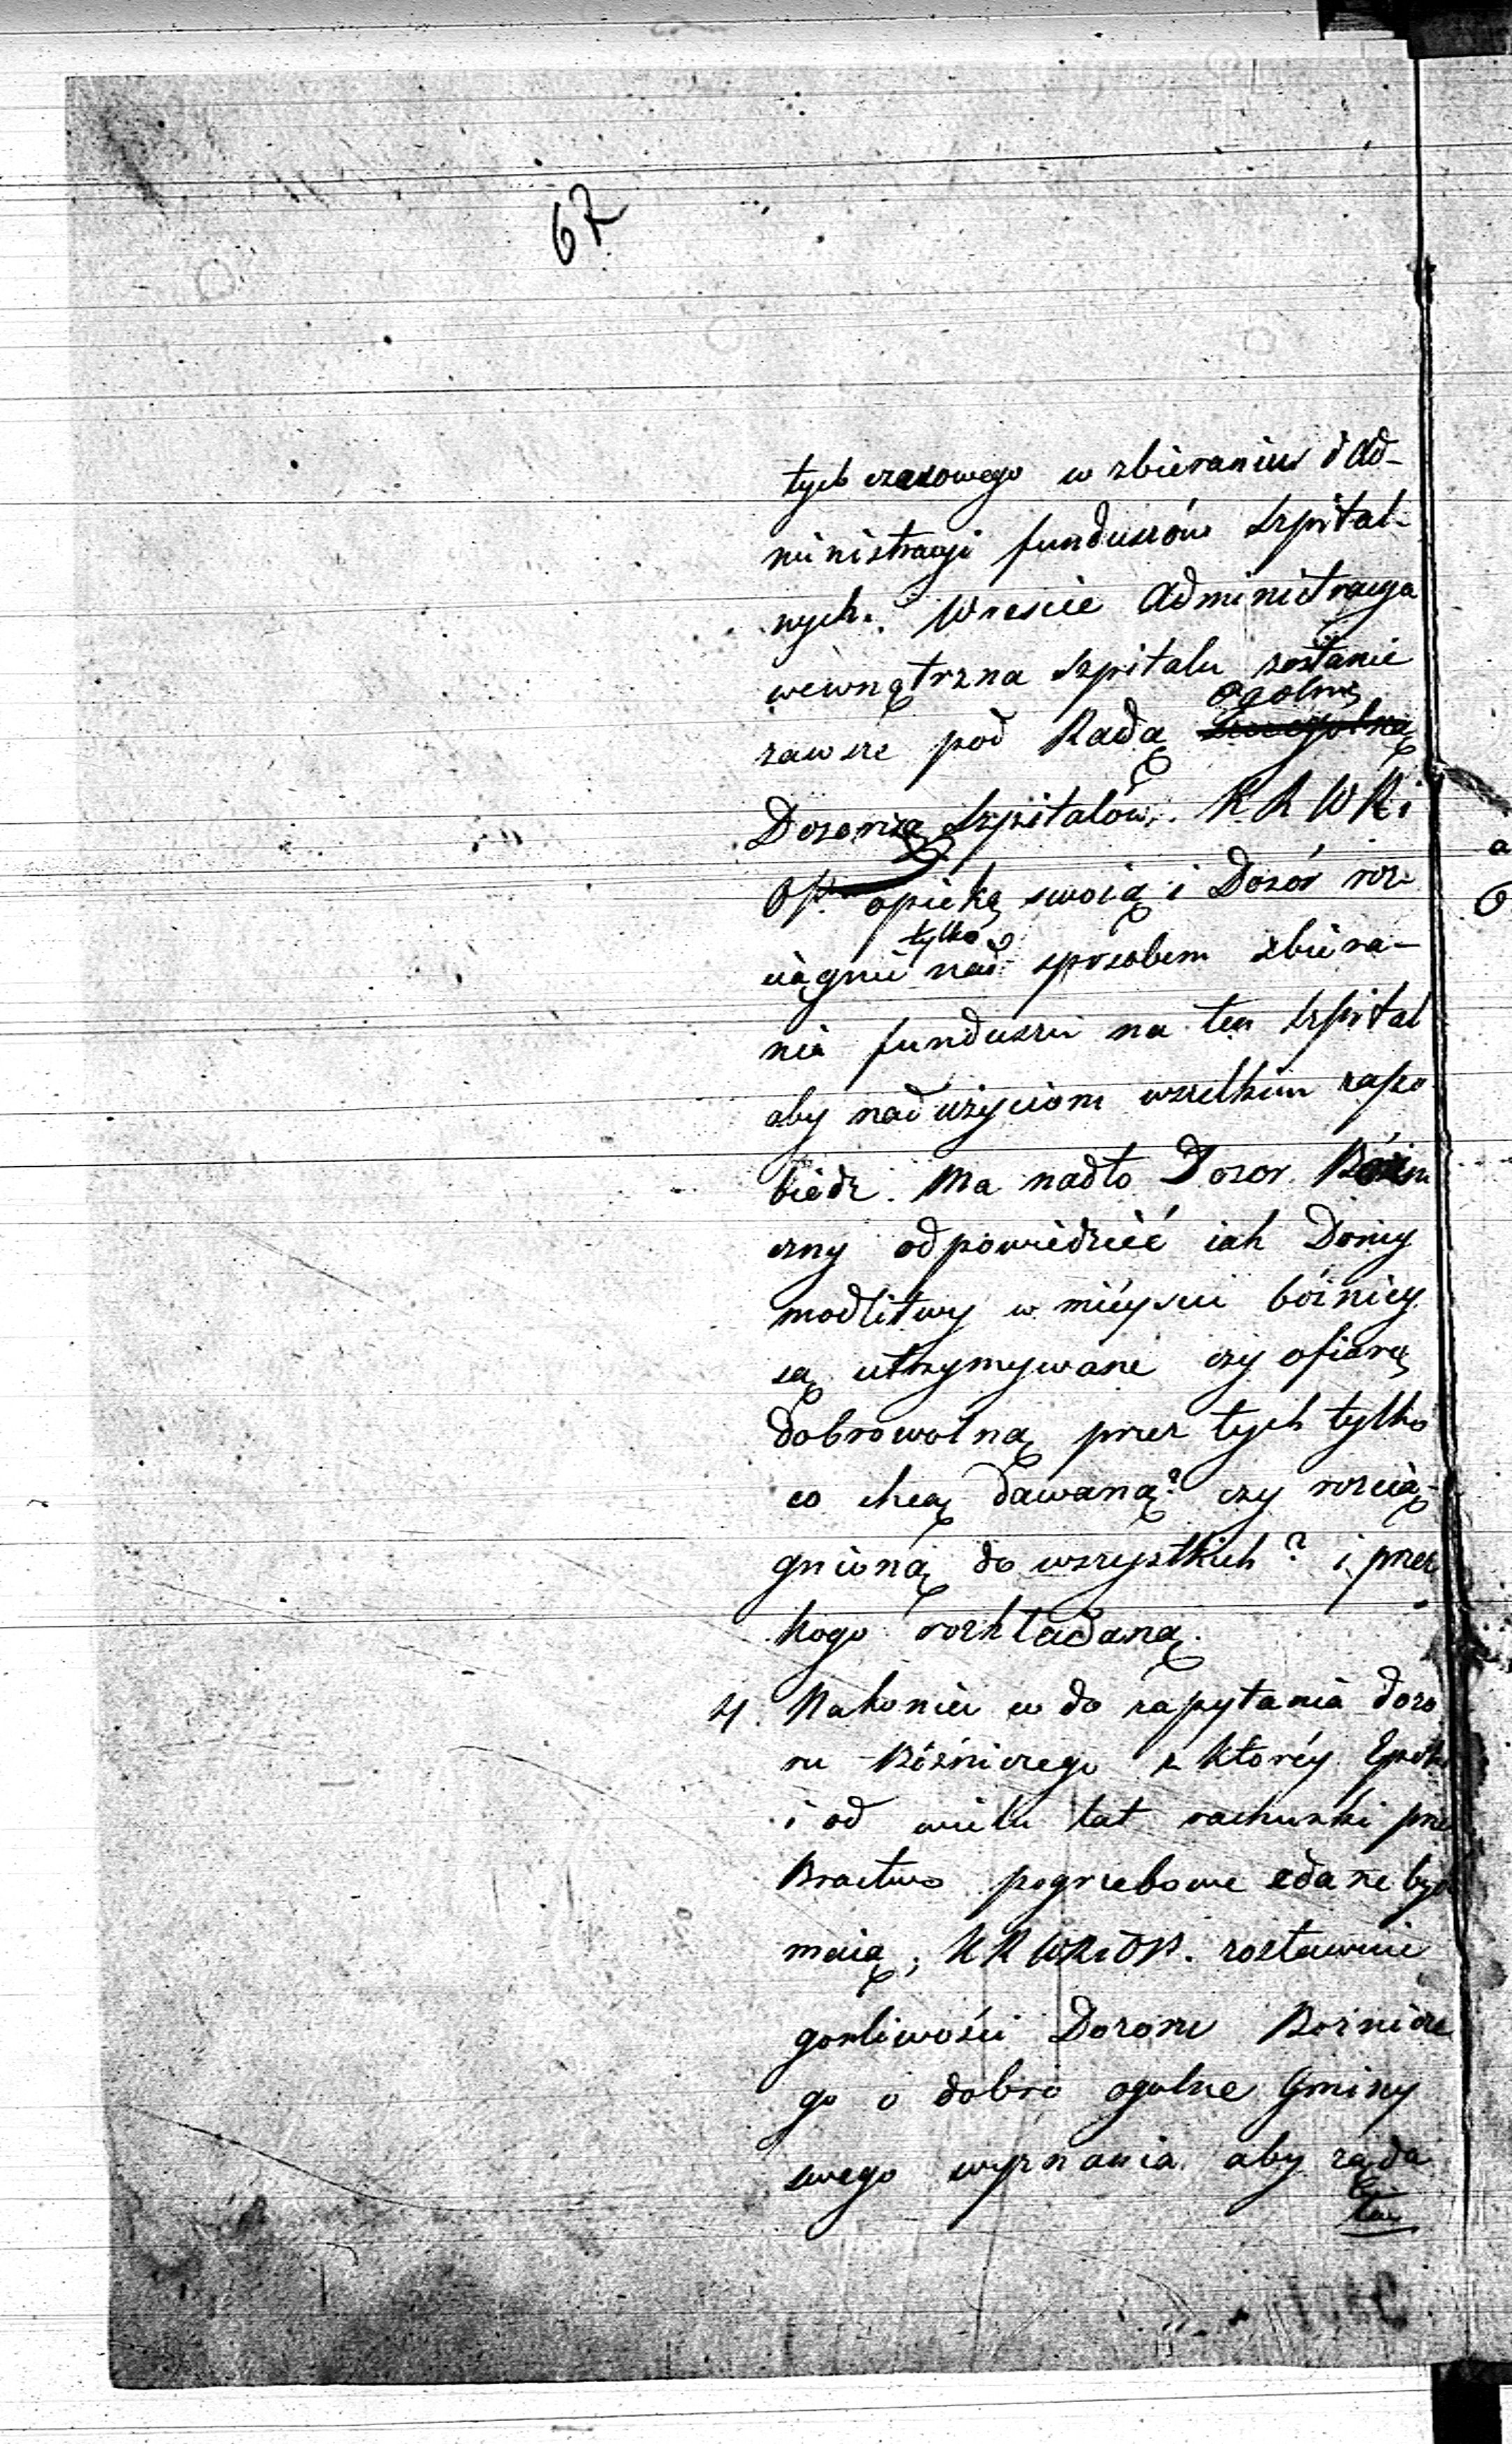 67
tych czasowego w zbieraniu i Ad-
ministracyi funduszów szpital-
nych. Wreście Administracya
wewnątrzna szpitalu zostanie
Ogolną
zawsze pod Radą Szczegolną
Dozorczą Szpitalów. KRWRi
OP. opiekę swoią i Dozór roz-
tylko
ciągnie nad sposobem zbiera-
nia funduszu na ten szpital
aby nadużyciom wszelkim zapo
biedz. Ma nadto Dozor Bóżn
czny odpowiedzieć iak Domy
modlitwy w mieyscu bóżnicy
są utrzymywane czy ofiarą
dobrowolną przez tych tylko
co chcą dawaną? czy rozcią-
gnioną do wszystkich? i przez
kogo rozkładaną.
4. Nakoniec co do zapytania dozo
ru Bóżniczego z któréy Epoki
i od wielu lat rachunki prze
Bractwo pogrzebowe zdane być
maią; KRWRiOP. zostawuie
gorliwości Dozoru Bożnicze
go o dobro ogolne Gminy
swego wyznania aby żąda
ła